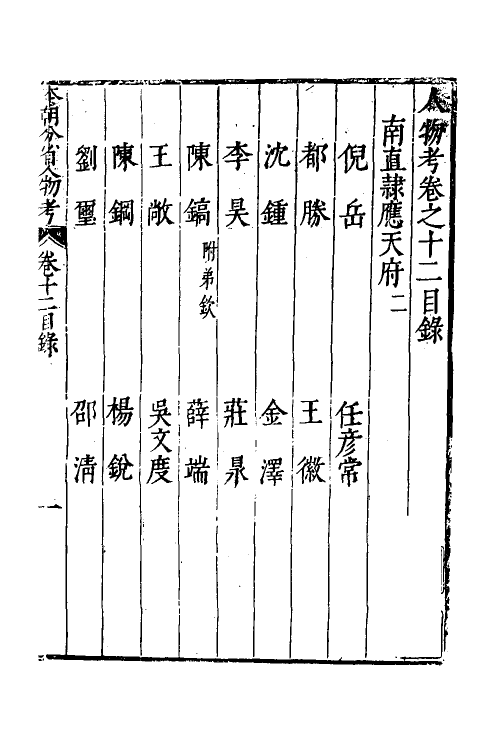 人物考卷之十二目錄
南直隷應天府二
倪岳 任彦常
都勝 王徽
沈鍾 金澤
李昊 莊㫤
陳鎬附弟欽 薛端
王敞 吳文度
陳鋼 楊銳
劉璽 邵清
本朝分省人物考 卷十二目錄 一